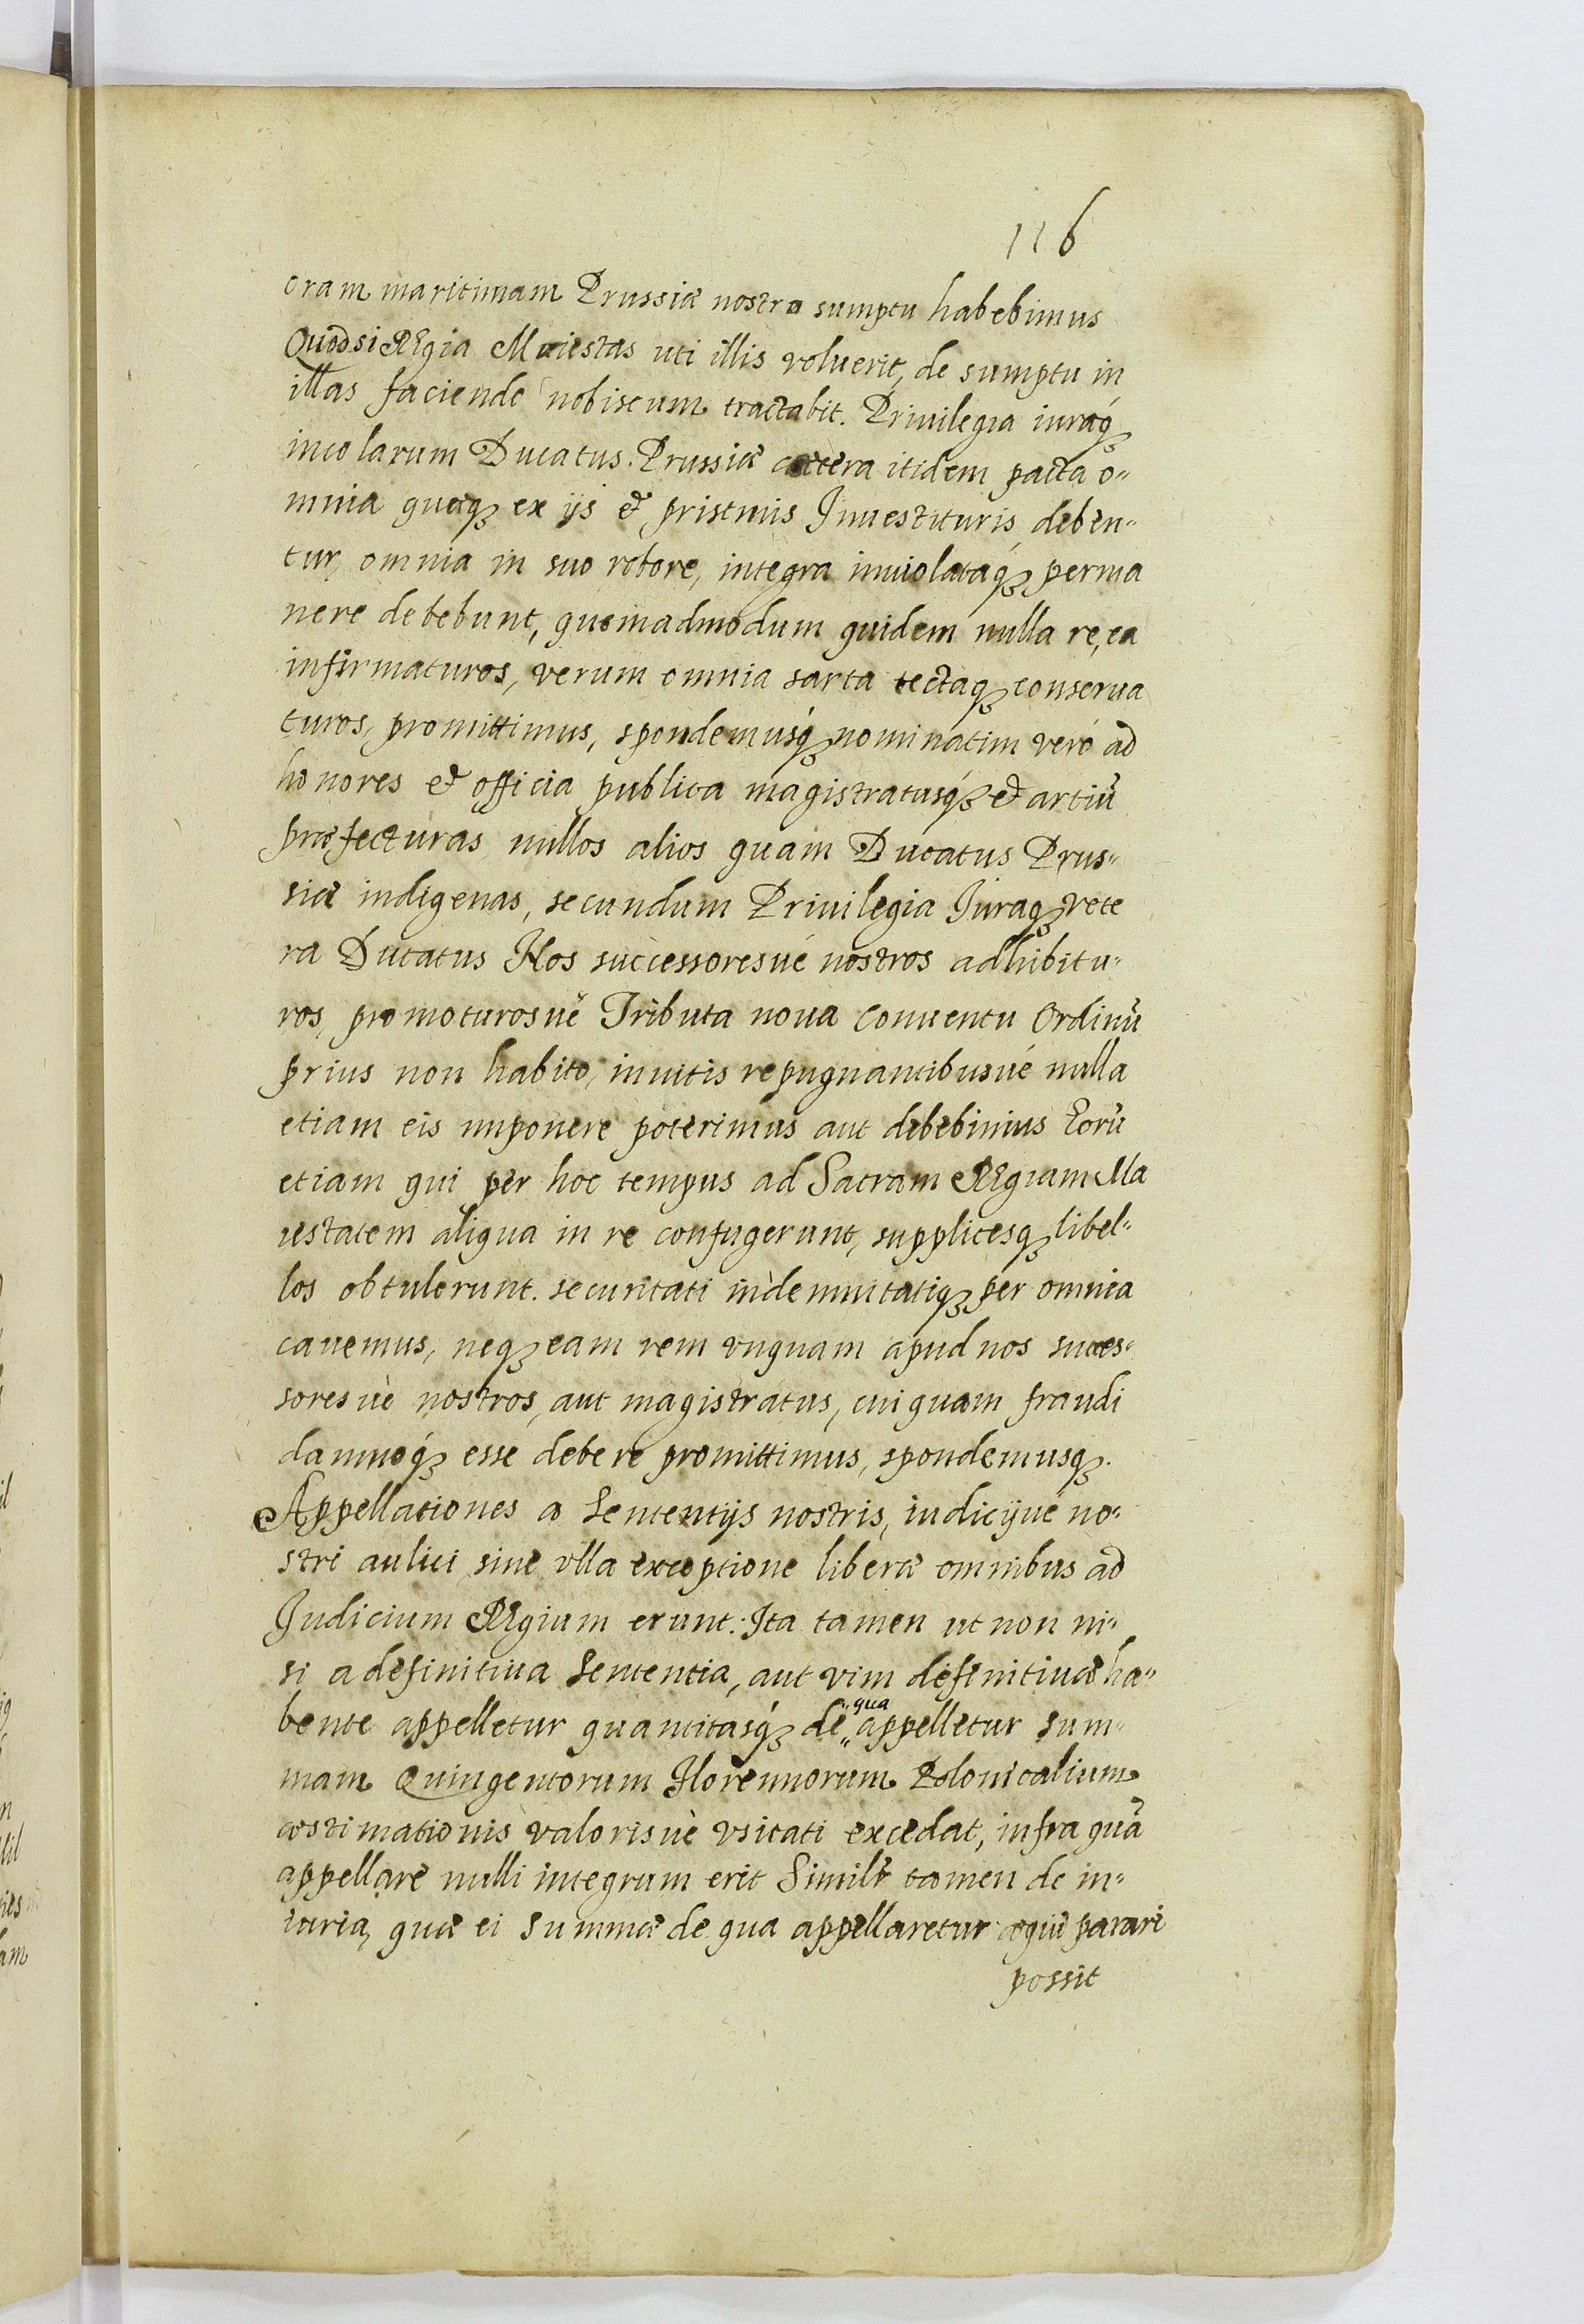 116
oram maritimam Prussiæ nostro sumptu habebimus
Quodsi Regia Maiestas uti illis voluerit, de sumptu in
illas faciendo nobiscum tractabit. Priuilegia iuraq́ꝫ
incolarum Ducatus Prussiæ cætera itidem pacta o"
mnia quæqꝫ ex ijs et pristinis Inuestituris deben"
tur, omnia in suo robore, integra inuiolataq́ꝫ perma
nere debebunt, quemadmodum quidem nulla re, ea
infirmaturos, verum omnia sarta tectaqꝫ conserua
turos, promittimus, spondemusq́ꝫ nominatim veró ad
honores et officia publica magistratusq́ꝫ et artiũ
præfecturas nullos alios quam Ducatus Prus"
siæ indigenas, secundum Priuilegia Iuraqꝫ vete
ra Ducatus Nos successoresué nostros adhibitu"
ros, promoturosué Tributa noua Conuentu Ordinũ
prius non habito, inuitis repugnantibusué nulla
etiam eis imponere poterimus aut debebimus Eorũ
etiam qui per hoc tempus ad Sacram Regiam Ma
iestatem aliqua in re confugerunt, supplicesqꝫ libel"
los obtulerunt. securitati indemnitatiqꝫ per omnia
cauemus, neqꝫ eam rem vnquam apud nos succes"
soresuè nostros, aut magistratus, cuiquam fraudi
damnoq́ꝫ esse debere promittimus, spondemusqꝫ.
Appellationes a Sententijs nostris, iudicijué no"
stri aulici, sine vlla exceptione liberæ omnibus ad
Iudicium Regium erunt. Ita tamen ut non ni"
si a definitiua Sententia, aut vim definitiuæ ha"
bente appelletur quantitasq́ꝫ de "qua appelletur sum"
mam Quingentorum Florennorum Polonicalium
æstimationis valorisuè vsitati excedat, infra quã
appellare nulli integrum erit Simile tamen de in"
iuria, quæ ei Summæ de qua appellaretur æquè parari
possit